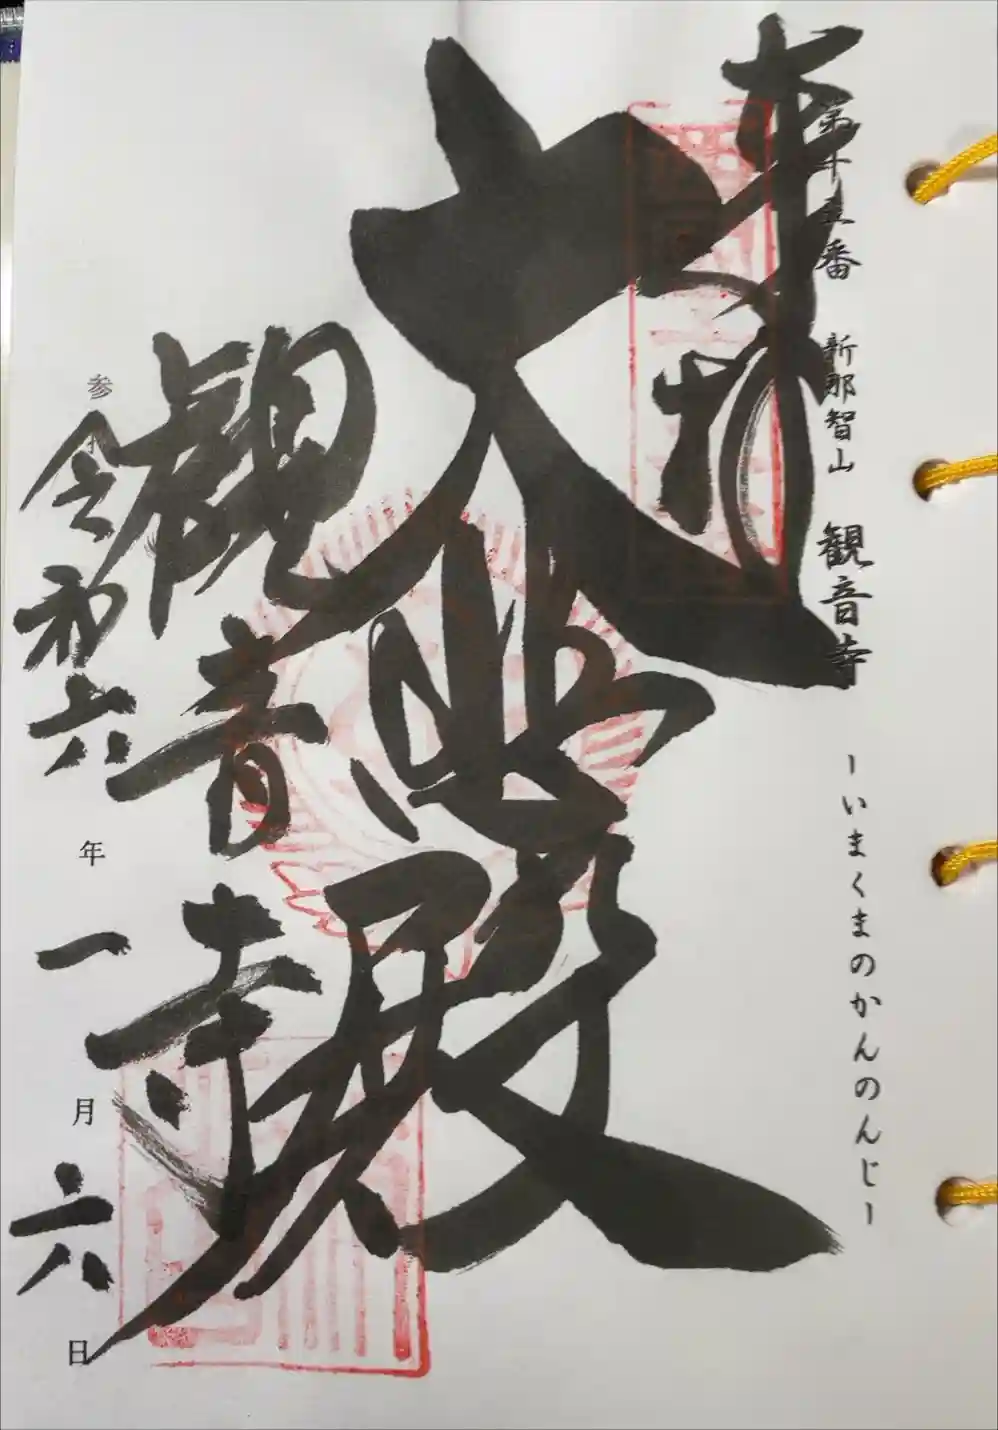 第十五番 新那智山 観音寺
-いまくまのかんのんじ-
奉拝
大悲殿
観音寺
参拝
令和六年一月六日